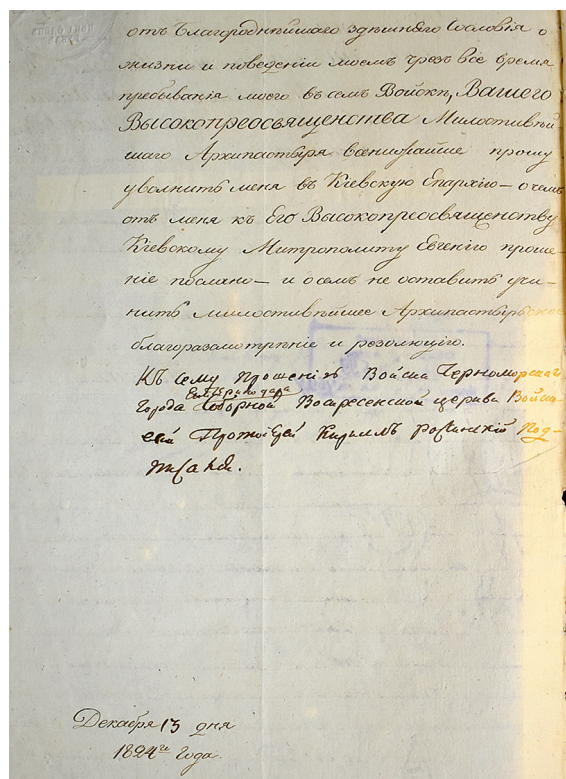 отъ Благороднѣйшаго здѣшняго Сословія о
жизни и поведеніи моемъ чрезъ все время
пребыванія моего въ семъ Войскѣ, Вашего
Высокопреосвященства Милостивѣй-
шаго Архипастыря всенижайше прошу
уволнить меня въ Кіевскую Епархію — о чемъ
отъ меня къ Его Высокопреосвященству
Кіевскому Митрополиту Евгенію проше-
ніе послано — и о семъ не оставить учи-
нить милостивѣйшее Архипастырское
благоразсмотрѣніе и резолюцію.
Къ сему Прошенію Войска Черноморскаго
Города Екатеринодара Соборной Воскресенской церкви Войско-
вый Протоіерей Кириллъ Россинскій Под-
писался.
Декабря 13 дня
1824го Года.